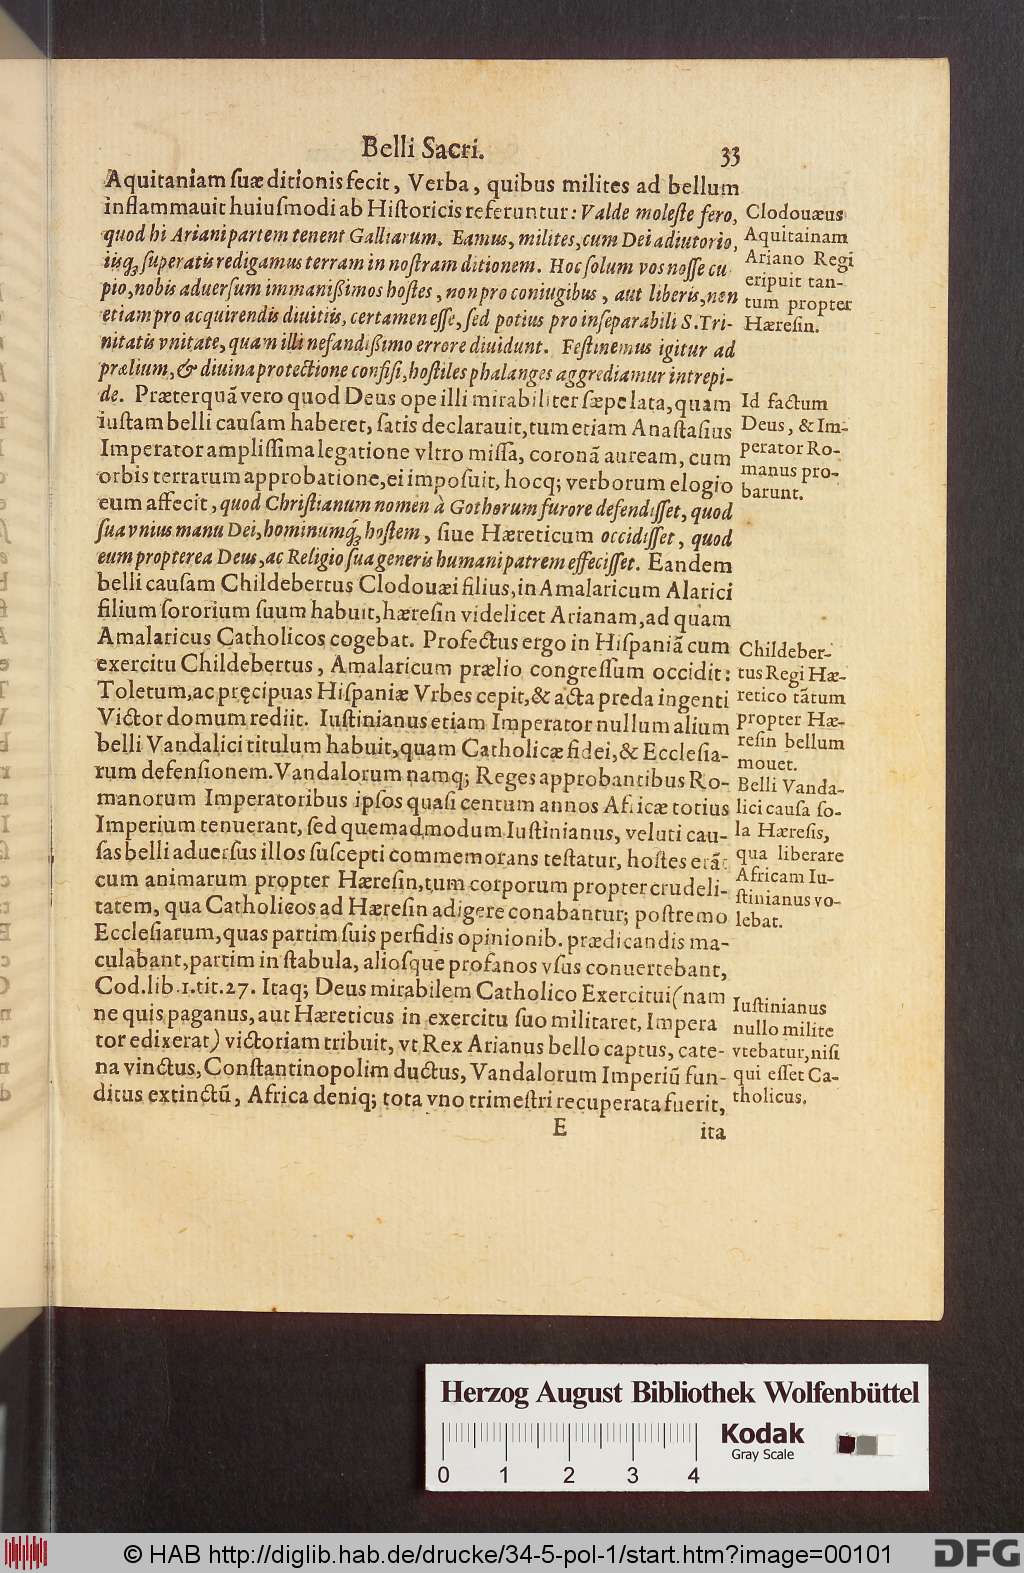 Belli Sacri.
33
Aquitaniam ſuæ ditionis fecit, Verba, quibus milites ad bellum
inflammauit huiuſmodi ab Hiſtoricis referuntur: Valde moleſte fero,
quod hi Ariani partem tenent Galliarum. Eamus, milites, cum Dei adiutorio,
iisq́; ſuperatis redigamus terram in noſtram ditionem. Hoc ſolum vos noſſe cu
pio, nobis aduerſum immanißimos hoſtes, non pro coniugibus, aut liberis, non
etiam pro acquirendis diuitiis, certamen eſſe, ſed potius pro inſeparabili S. Tri-
nitatis vnitate, quam illi nefandißimo errore diuidunt. Feſtinemus igitur ad
prælium, & diuina protectione confiſi, hoſtiles phalanges aggrediamur intrepi-
de. Præterquã vero quod Deus ope illi mirabiliter ſæpe lata, quam
iuſtam belli cauſam haberet, ſatis declarauit, tum etiam Anaſtaſius
Imperator ampliſſima legatione vltro miſſa, coronã auream, cum
orbis terrarum approbatione, ei impoſuit, hocq; verborum elogio
eum affecit, quod Chriſtianum nomen à Gothorum furore defendiſſet, quod
ſua vnius manu Dei, hominumq́; hoſtem, ſiue Hæreticum occidiſſet, quod
eum propterea Deus, ac Religio ſua generis humani patrem effeciſſet. Eandem
belli cauſam Childebertus Clodouæi filius, in Amalaricum Alarici
filium ſororium ſuum habuit, hæreſin videlicet Arianam, ad quam
Amalaricus Catholicos cogebat. Profectus ergo in Hiſpaniã cum
exercitu Childebertus, Amalaricum prælio congreſſum occidit:
Toletum, ac pręcipuas Hiſpaniæ Vrbes cepit, & acta preda ingenti
Victor domum rediit. Iuſtinianus etiam Imperator nullum alium
belli Vandalici titulum habuit, quam Catholicæ fidei, & Eccleſia-
rum defenſionem. Vandalorum namq; Reges approbantibus Ro-
manorum Imperatoribus ipſos quaſi centum annos Africæ totius
Imperium tenuerant, ſed quemadmodum Iuſtinianus, veluti cau-
ſas belli aduerſus illos ſuſcepti commemorans teſtatur, hoſtes erãt
cum animarum propter Hæreſin, tum corporum propter crudeli-
tatem, qua Catholicos ad Hæreſin adigere conabantur; poſtremo
Eccleſiarum, quas partim ſuis perfidis opinionib. prædicandis ma-
culabant, partim in ſtabula, alioſque profanos vſus conuertebant,
Cod. lib. 1. tit. 27. Itaq; Deus mirabilem Catholico Exercitui (nam
ne quis paganus, aut Hæreticus in exercitu ſuo militaret, Impera
tor edixerat) victoriam tribuit, vt Rex Arianus bello captus, cate-
na vinctus, Conſtantinopolim ductus, Vandalorum Imperiũ fun-
ditus extinctũ, Africa deniq; tota vno trimeſtri recuperata fuerit,
E
ita
Clodouæus
Aquitainam
Ariano Regi
eripuit tan-
tum propter
Hæreſin.
Id factum
Deus, & Im-
perator Ro-
manus pro-
barunt.
Childeber-
tus Regi Hæ-
retico tãtum
propter Hæ-
reſin bellum
mouet.
Belli Vanda-
lici cauſa ſo-
la Hæreſis,
qua liberare
Africam Iu-
ſtinianus vo-
lebat.
Iuſtinianus
nullo milite
vtebatur, niſi
qui eſſet Ca-
tholicus.
Herzog August Bibliothek Wolfenbüttel
0 1 2 3 4
Kodak
Gray Scale
© HAB http://diglib.hab.de/drucke/34-5-pol-1/start.htm?image=00101
DFG